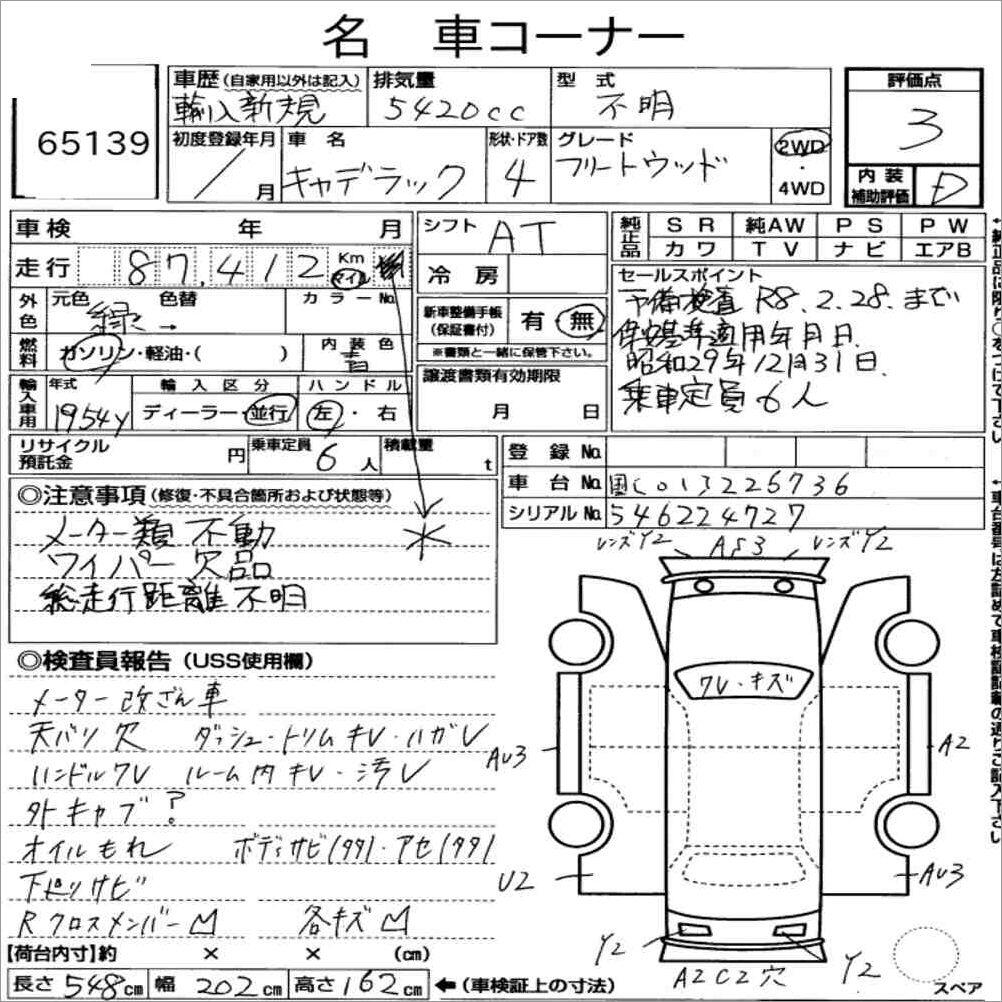 名 車コーナー
65139
車歴(自家用以外は記入) 排気量 型式 評価点
輸入新規 5420cc 不明 3
初度登録年月 車名 形状・ドア数 グレード 2WD・4WD
/月 キャデラック 4 フリートウッド
内装補助評価 D
車検 年 月 シフト AT
純正品 SR 純AW PS PW
カワ TV ナビ エアB
走行 87,412 Km マイル 冷房
セールスポイント
予備検査 R8.2.28.まで
保安基準適用年月日.
昭和29年12月31日.
乗車定員6人
外色 元色 色替 カラーNo.
緑→
新車整備手帳(保証書付) 有 無
※書類と一緒に保管下さい。
燃料 ガソリン・軽油・( ) 内装色 青
譲渡書類有効期限
月 日
輸入車用 年式 輸入区分 ハンドル
1954y ディーラー・並行 左・右
リサイクル預託金 円 乗車定員 6人 積載量 t
登録No.
車台No. 国[C]013226736
シリアルNo. 546224727
◎注意事項(修復・不具合箇所および状態等)
メーター類 不動 *
ワイパー 欠品
総走行距離 不明
◎検査員報告(USS使用欄)
メーター改ざん車
天バリ欠 ダッシュ・トリムキレ・ハガレ
ハンドルワレ ルーム内キレ・汚レ
外キャブ?
オイルもれ ボディサビ(タタ)・アセ(タタ)
下廻リサビ
Rクロスメンバー凹 各キズ凹
【荷台内寸】約 × × (cm)
長さ548cm 幅202cm 高さ162cm ←(車検証上の寸法)
レンズY2 AS3 レンズY2
ワレ・キズ
AU3 A2
U2 AU3
Y2 A2C2穴 Y2
スペア